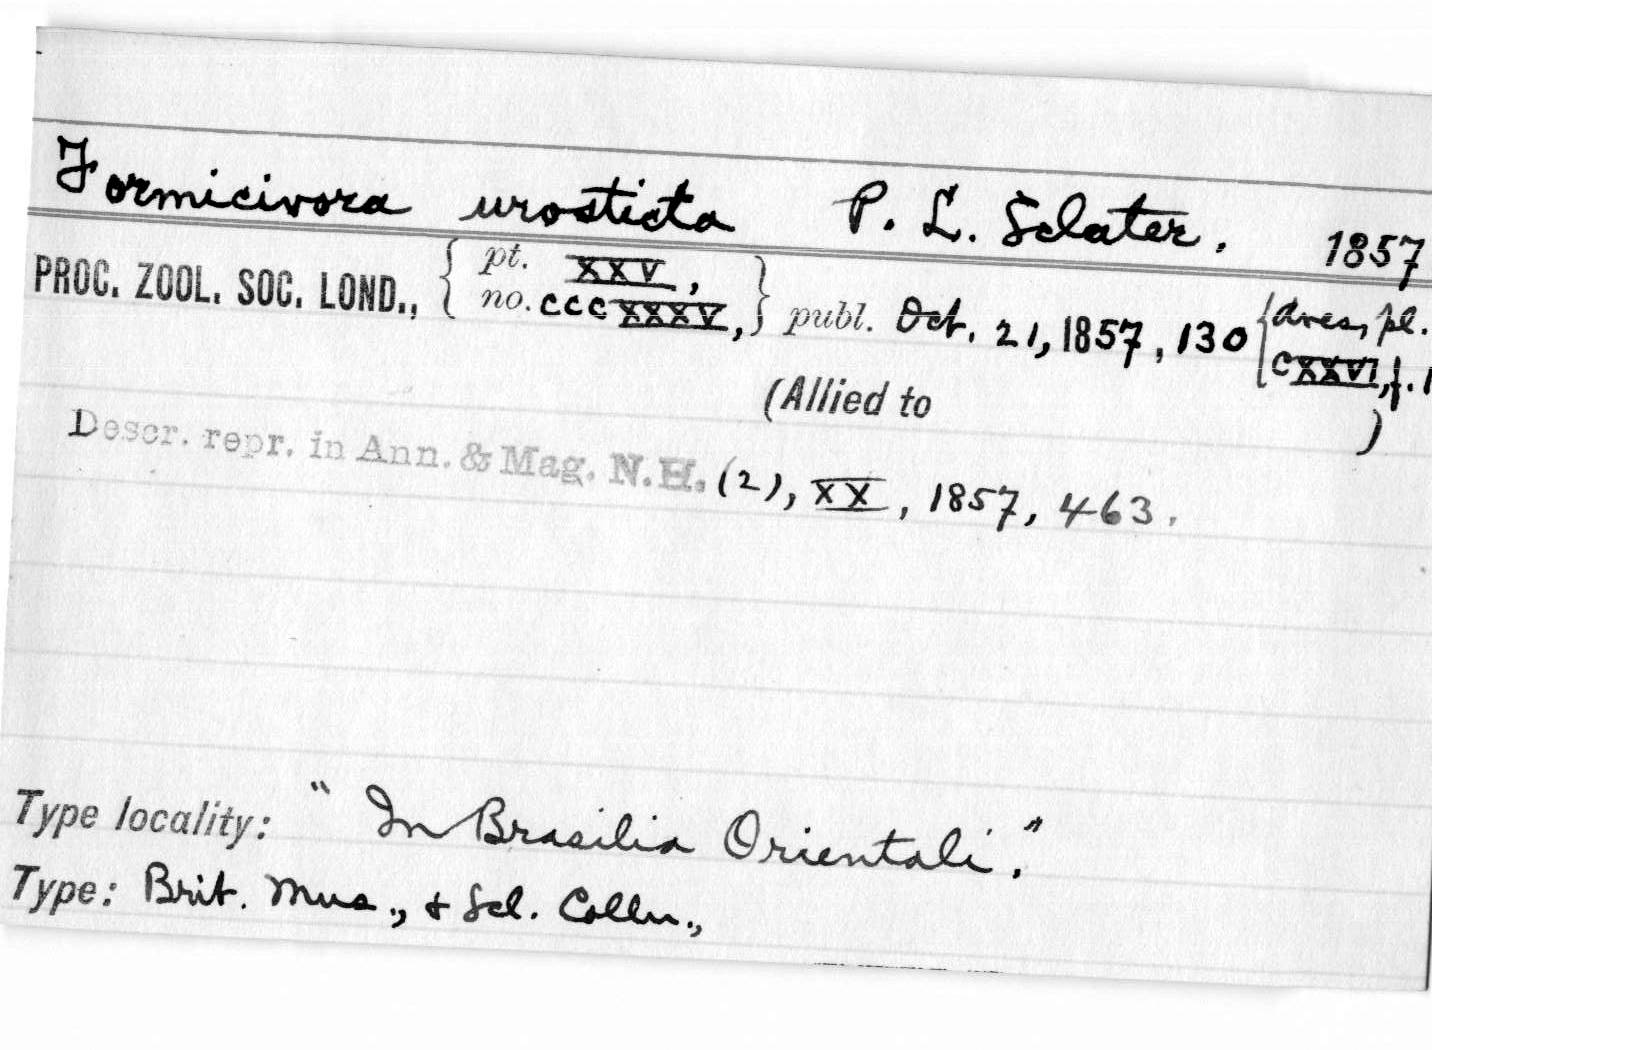 Formicivora urosticta P. L. Sclater. 1857
PROC. ZOOL. SOC. LOND., { pt. XXV, no. CCCXXXV, } publ. Oct. 21, 1857, 130 { Aves, pl. CXXVI, f. 1
(Allied to )
Descr. repr. in Ann. & Mag. N.H. (2), XX, 1857, 463.
Type locality: "In Brasilia Orientali."
Type: Brit. Mus., & Scl. Colln.,